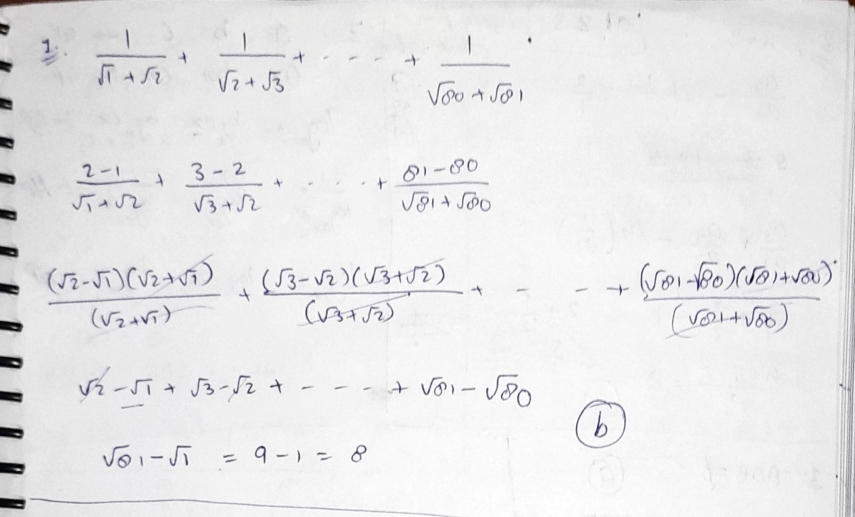 1. 1/(√1 + √2) + 1/(√2 + √3) + - - - - + 1/(√80 + √81)
(2-1)/(√1 + √2) + (3-2)/(√3 + √2) + - - - - + (81-80)/(√81 + √80)
(√2-√1)(√2+√1)/(√2+√1) + (√3-√2)(√3+√2)/(√3+√2) + - - + (√81-√80)(√81+√80)/(√81+√80)
√2 - √1 + √3 - √2 + - - - + √81 - √80
b
√81 - √1 = 9 - 1 = 8